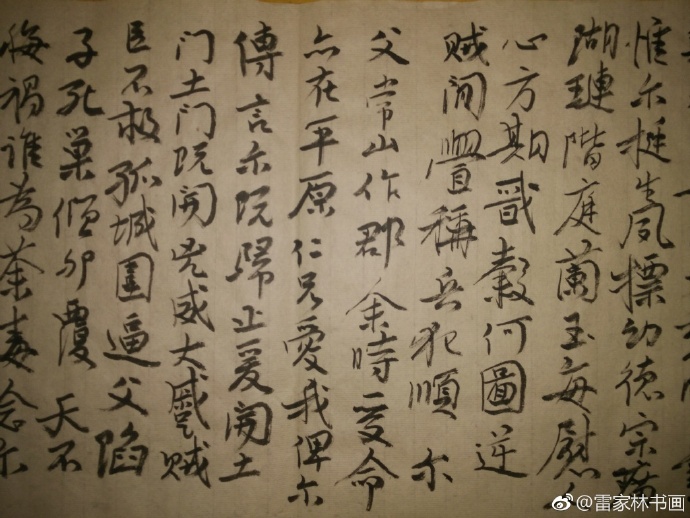 惟尔挺生夙標幼德宗瑚
瑚璉階庭蘭玉每慰
心方期戩穀何圖逆
賊間釁稱兵犯順尔
父常山作郡余時受命
亦在平原仁兄愛我俾尔
傳言尔既歸止爰開土
门土门既開凶威大蹙賊
臣不救孤城圍逼父陷
子死巢傾卵覆天不
悔禍誰為荼毒念尔
@雷家林书画